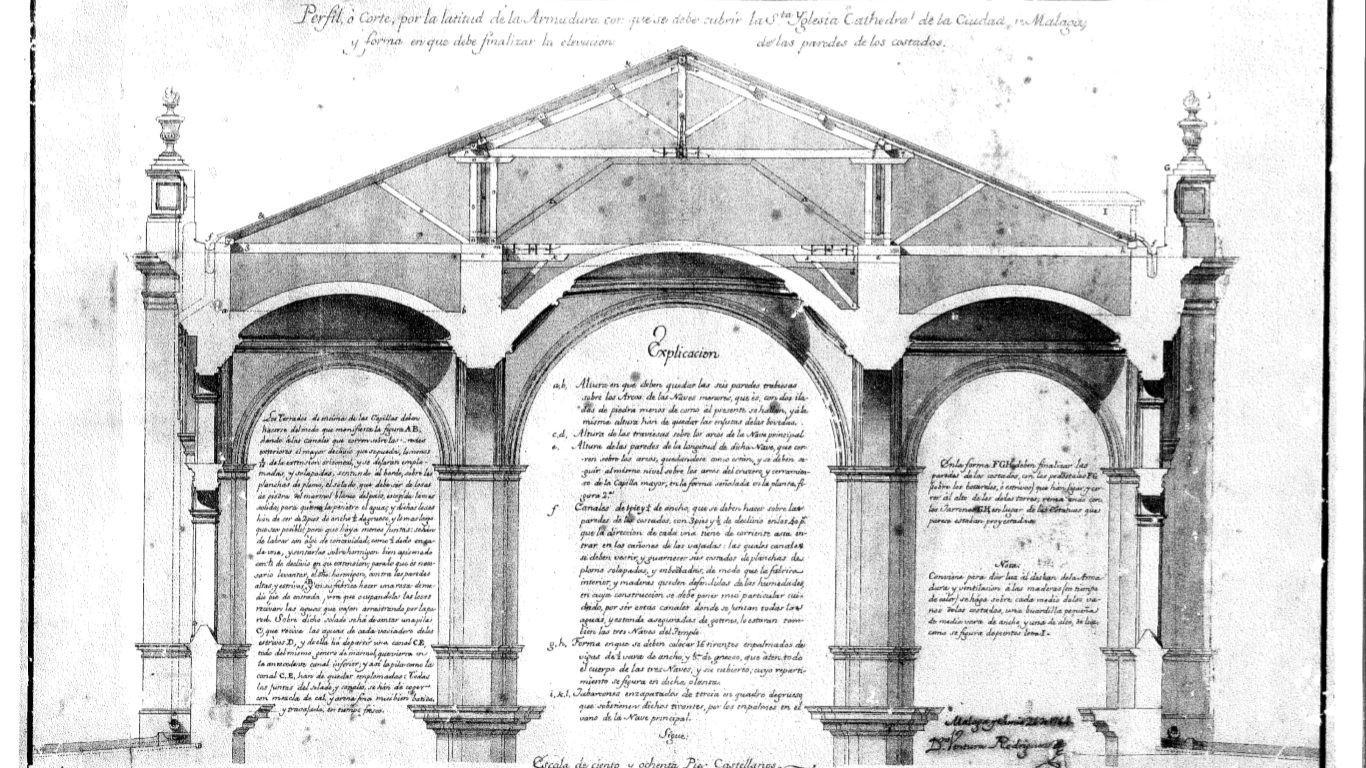 Perfil, ò Corte, por la latitud de la Armadura con que se debe cubrir la Sta Yglesia Cathedral de la Ciudad de Malaga,
y forma en que debe finalizar la elevacion de las paredes de los costados.
Los Terrados de encima de las Capillas deben
hacerse del modo que manifiesta la figura A B,
dando á las canales que corren sobre las
exteriores el mayor declivio que se pueda,
de la extension
planchas de plomo, el solado, que debe ser de losas
de piedra
solida, para que no la penetre el agua; y dichas losas
que sea posible, para que haya menos juntas:
de una, y sentarlas sobre hormigon bien apisonado
con de declivio en su extension; para lo que es nece-
sario levantar, el dho. hormigon, contra las paredes
dio pie de entrada, en que
reciban las aguas que vajen arrastrando por la pa-
red. Sobre dicho solado se ha de sentar una pila
C, que reciva las aguas de cada vaciadero de los
estrivos D, y de ella ha de partir una canal C E,
todo del mismo genero de marmol, que vierta en
la antecedente canal inferior; y asi la pila como la
canal C, E, han de quedar emplomadas: Todas
las juntas del solado y canales, se han de coger
con mezcla de cal y arena fina mui bien batida,
y travajada, en tiempo fresco.
Explicacion
a, b, Altura en que deben quedar las seis paredes traviesas
sobre los Arcos de las Naves menores, que es, con dos ila-
das de piedra menos de como al presente se hallan, y á la
misma altura han de quedar las enjutas de las bovedas.
c, d, Altura de las traviesas sobre los arcos de la Nave principal
e, Altura de las paredes de la longitud de dicha Nave, que cor-
ren sobre los arcos, quedandose como están, y se deben se-
guir al mismo nivel sobre los arcos del crucero, y cerramien-
to de la Capilla mayor, en la forma señalada en la planta, fi-
gura 2.a
f Canales de 1 pie y de ancho, que se deben hacer sobre las
paredes de los costados, con 3 pies y ½ de declivio
que la direccion de cada una tiene de corriente asta en-
trar en los cañones de las vajadas: las quales canales
se deben vestir, y guarnecer sus costados de planchas de
plomo solapadas, y emboltadas, de modo que la fabrica
interior, y maderas queden defendidas de las humedades,
en cuya construccion se debe poner mui particular cui-
dado, por ser estas canales donde se juntan todas las
aguas, y estando aseguradas de goteras, lo estaran tam-
bien las tres Naves del Templo.
g, h, Forma en que se deben colocar 16 tirantes empalmados de
vigas de vara de ancho, y de grueso, que aten todo
el cuerpo de las tres Naves, y su cubierto; cuyo reparti-
miento se figura en dicha planta.
i, k, l, Jabarcones enzapatados de tercia en quadro de grueso
que sobstienen dichos tirantes, por los empalmes en el
vano de la Nave principal.
Sigue.
En la forma F G H, deben finalizar las
paredes de los costados, con los pedestales F G
sobre los botareles, ò estrivos, que han
en lugar de las Estatuas que
parece estaban proyectadas.
Nota.
Conviene para dár luz al desban de la Arma-
dura y ventilacion á las maderas (en tiempo
de calor) se haga sobre cada medio de los va-
nos de los costados, una buardilla pequeña
de media vara de ancho, y una de alto, de luz,
como se figura de puntos letra I.
Malaga
Dn. Ventura Rodriguez
Escala de ciento y ochenta Pies Castellanos